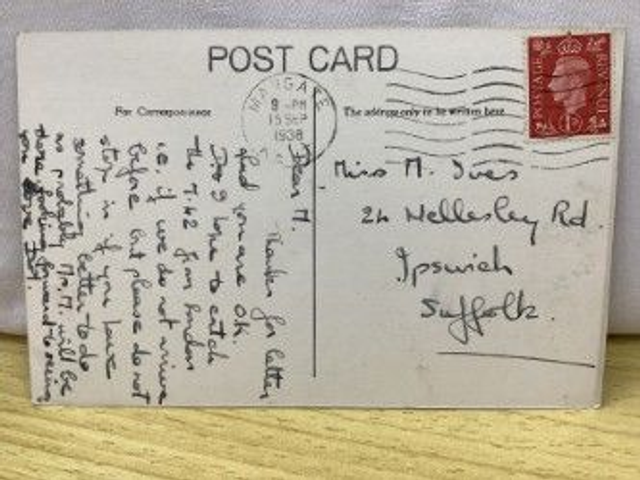 POST CARD
For Correspondence
The address only to be written here
MARGATE
9 - PM
15 SEP
1938
POSTAGE
REVENUE
Dear M.
Thanks for letter
Glad you are O.K.
Doy & I hope to catch
the 7.42 from London
i.e. if we do not arrive
before but please do not
stop in if you have
something better to do
as probably Mr. M. will be
there. Looking forward to seeing
you. Love
Miss M. Ives
24 Wellesley Rd.
Ipswich
Suffolk.